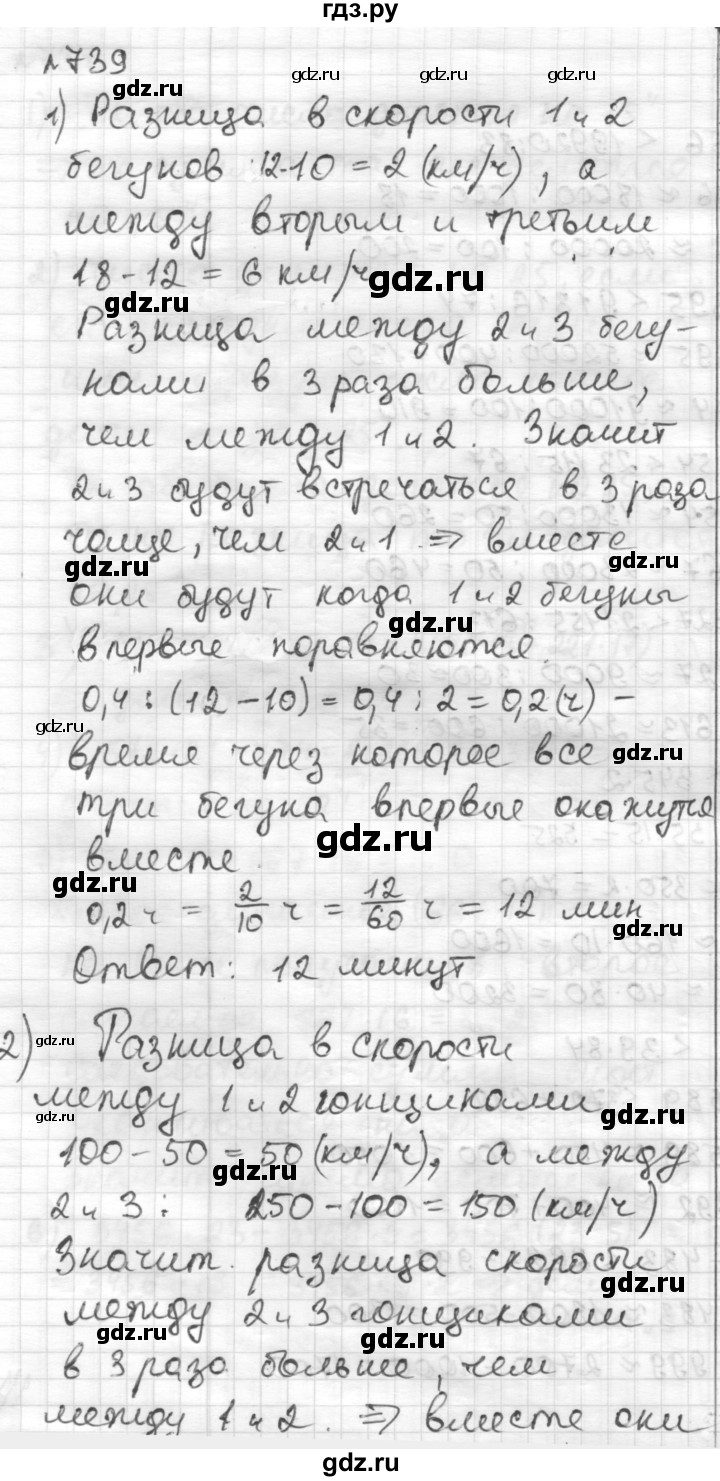 гдз.ру
№739
1) Разница в скорости 1 и 2
бегунов 12-10 = 2 (км/ч), а
между вторым и третьим
18 - 12 = 6 км/ч
Разница между 2 и 3 бегу-
нами в 3 раза больше,
чем между 1 и 2. Значит
2 и 3 будут встречаться в 3 раза
чаще, чем 2 и 1 ⇒ вместе
они будут когда 1 и 2 бегуны
впервые поравняются.
0,4 : (12 - 10) = 0,4 : 2 = 0,2 (ч) -
время через которое все
три бегуна впервые окажутся
вместе.
0,2 ч = 2/10 ч = 12/60 ч = 12 мин
Ответ: 12 минут
2) Разница в скорости
между 1 и 2 гонщиками
100 - 50 = 50 (км/ч), а между
2 и 3: 250 - 100 = 150 (км/ч)
Значит разница скорости
между 2 и 3 гонщиками
в 3 раза больше, чем
между 1 и 2. ⇒ вместе они
gdz.ru